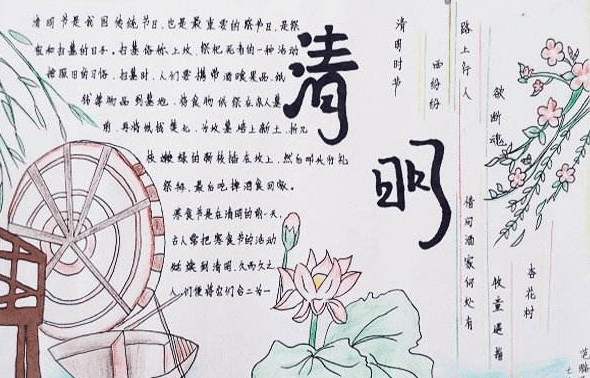 清明节是我国传统节日,也是最重要的祭节日,是祭
祖和扫墓的日子。扫墓俗称上坟,祭祀死者的一种活动
按照旧的习俗,扫墓时,人们要携带酒食果品,纸
钱等物品到墓地,将食物供祭在亲人墓
前,再将纸钱焚化,为坟墓培上新土,折几
枝嫩绿的新枝插在坟上,然后叩头行礼
祭拜,最后吃掉酒食回家。
寒食节是在清明的前一天,
古人常把寒食节的活动
延续到清明,久而久之
人们便将它们合二为一
清
明
清明时节
雨纷纷
路上行人
欲断魂
借问酒家何处有
牧童遥指
杏花村